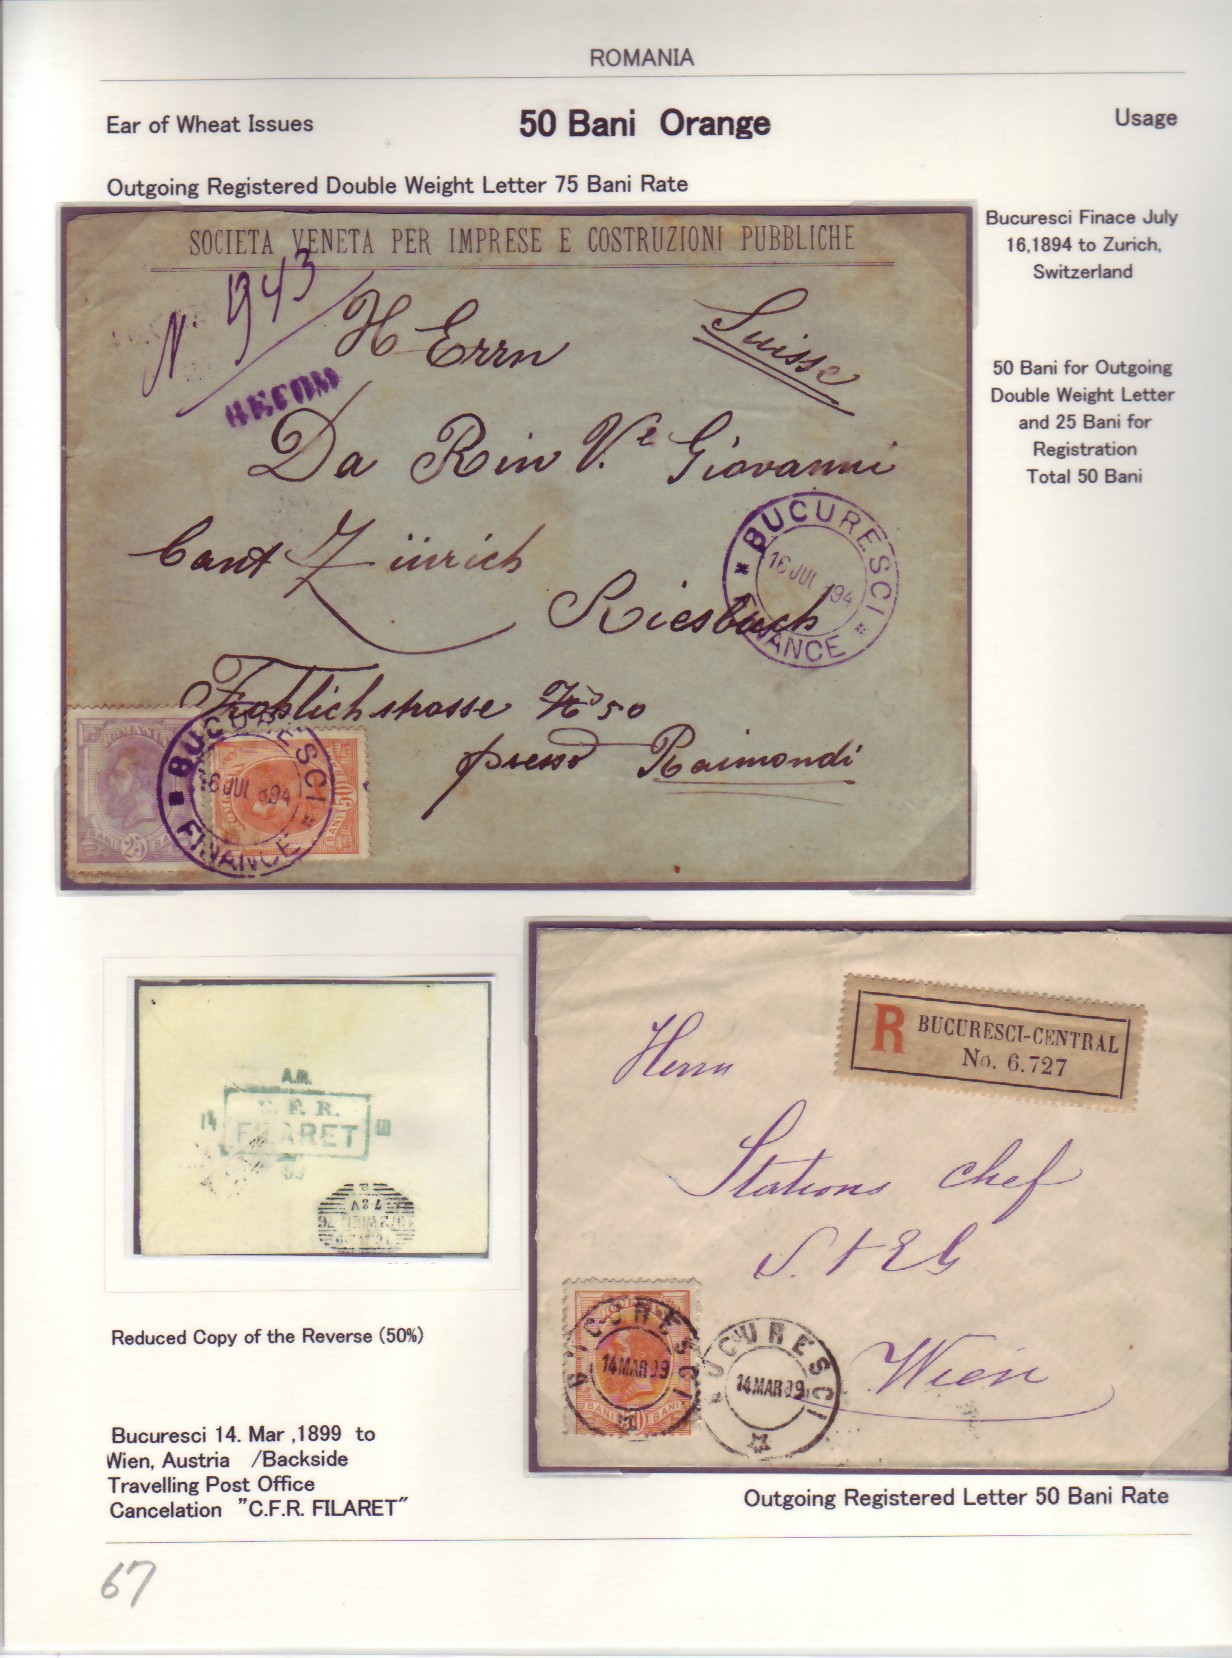 ROMANIA
Ear of Wheat Issues
50 Bani Orange
Usage
Outgoing Registered Double Weight Letter 75 Bani Rate
Bucuresci Finace July
16,1894 to Zurich,
Switzerland
50 Bani for Outgoing
Double Weight Letter
and 25 Bani for
Registration
Total 50 Bani
SOCIETA VENETA PER IMPRESE E COSTRUZIONI PUBBLICHE
N. 1943
RECOM
HErrn
Suisse
Da Rin V.e Giovanni
Cant Züirich
Riesbach
BUCURESCI
16 JUL 94
FINANCE
Frohlichstrasse No 50
presso Raimondi
ROMANIA
BANI 25 BANI
BUCURESCI
16 JUL 94
FINANCE
50
BANI
R BUCURESCI-CENTRAL
No. 6.727
Herrn
Stations Chef
S. t E G
Wien
BUCURESCI
14 MAR 99
BANI 50 BANI
BUCURESCI
14 MAR 99
A.R.
C. F. R.
14 FILARET III
99
Reduced Copy of the Reverse (50%)
Bucuresci 14. Mar ,1899 to
Wien, Austria /Backside
Travelling Post Office
Cancelation "C.F.R. FILARET"
Outgoing Registered Letter 50 Bani Rate
67